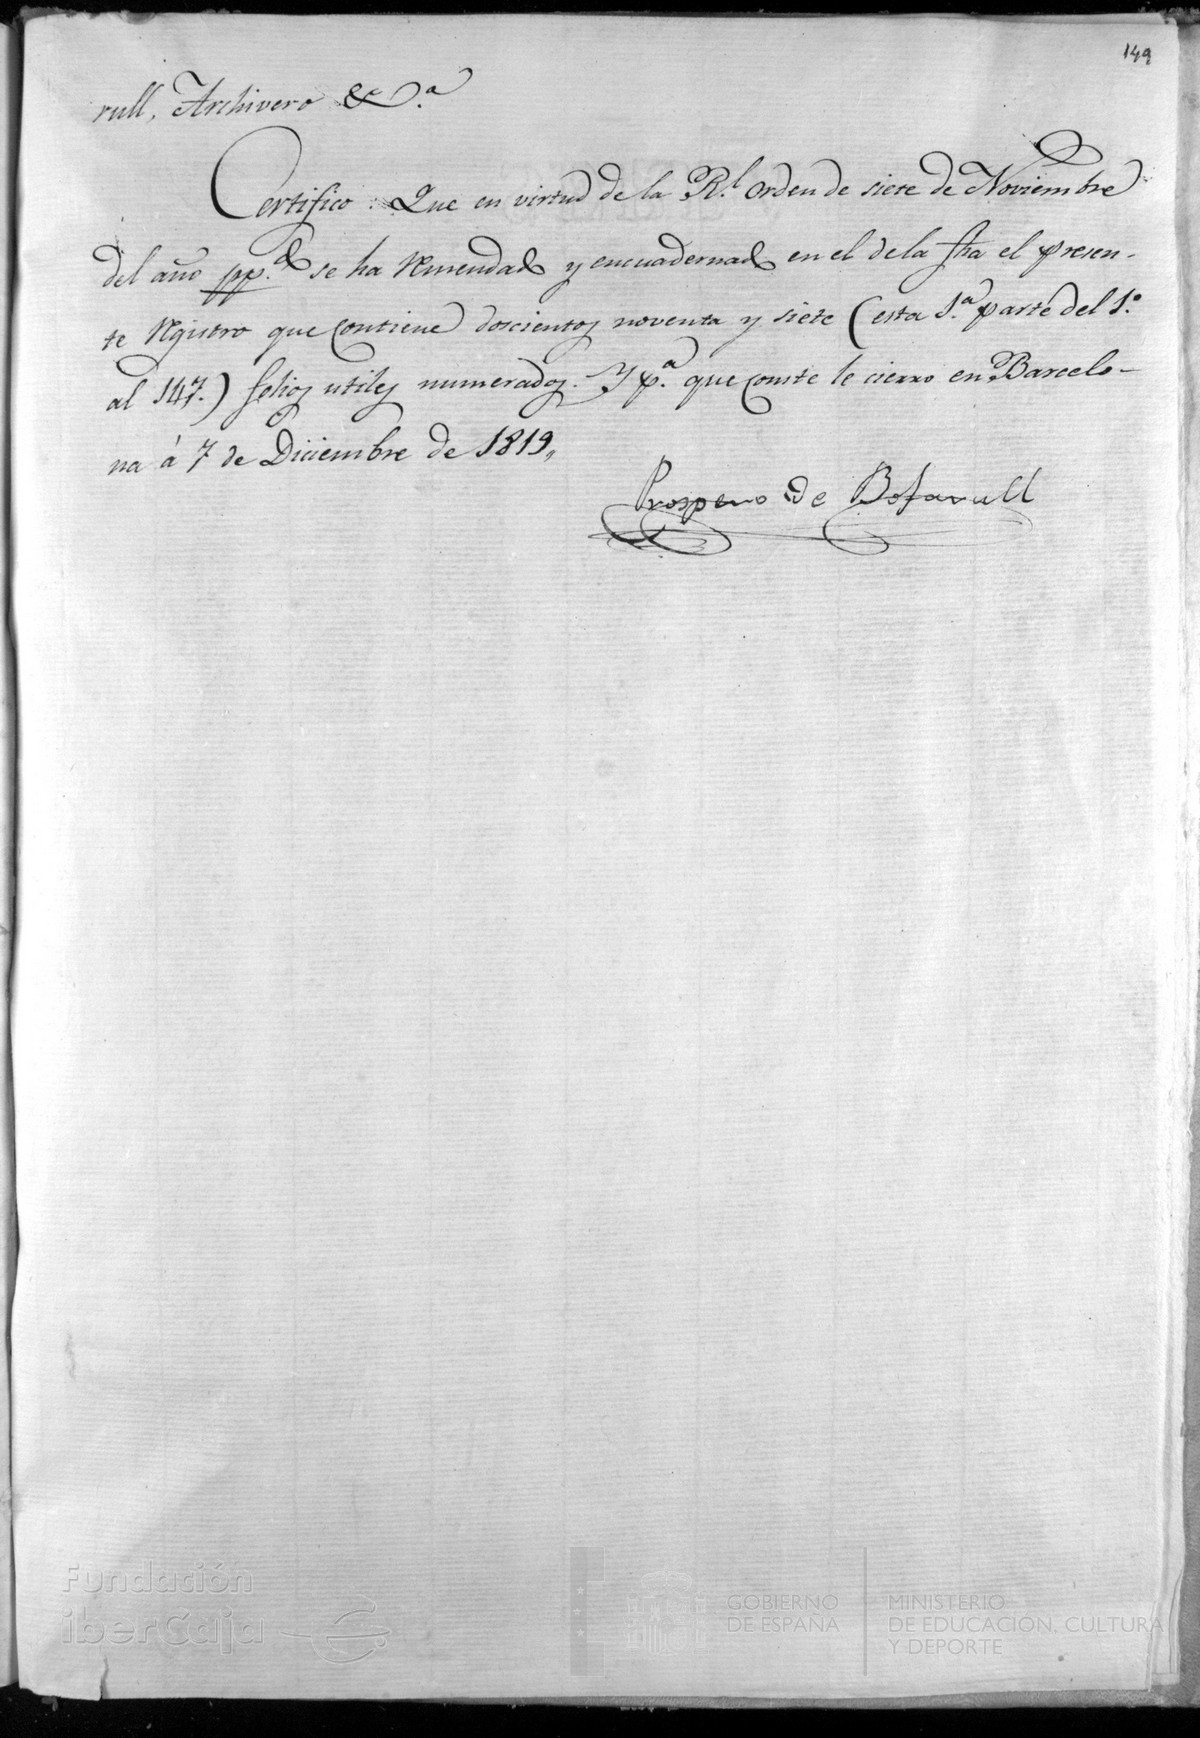 149
rull, Archivero &c.ª
Certifico: Que en virtud de la Rl. orden de siete de Noviembre
del año pp.do se ha Remendado y encuadernado en el de la fha el presen-
te Registro que contiene doscientos noventa y siete (esta 1.ª parte del 1.º
al 147.) folios utiles numerados. Y p.ª que conste le cierro en Barcelo-
na á 7 de Diciembre de 1819,,
Prospero de Bofarull
Fundación
iberCaja
GOBIERNO
DE ESPAÑA
MINISTERIO
DE EDUCACIÓN, CULTURA
Y DEPORTE